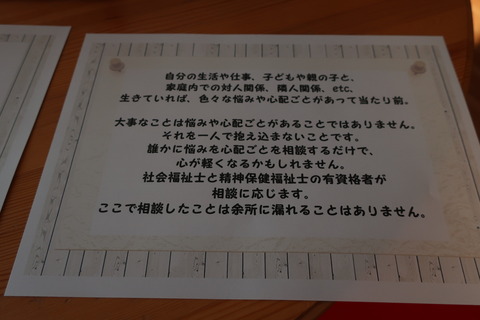 自分の生活や仕事、子どもや親の子と、
家庭内での対人関係、隣人関係、etc、
生きていれば、色々な悩みや心配ごとがあって当たり前。
大事なことは悩みや心配ごとがあることではありません。
それを一人で抱え込まないことです。
誰かに悩みを心配ごとを相談するだけで、
心が軽くなるかもしれません。
社会福祉士と精神保健福祉士の有資格者が
相談に応じます。
ここで相談したことは余所に漏れることはありません。